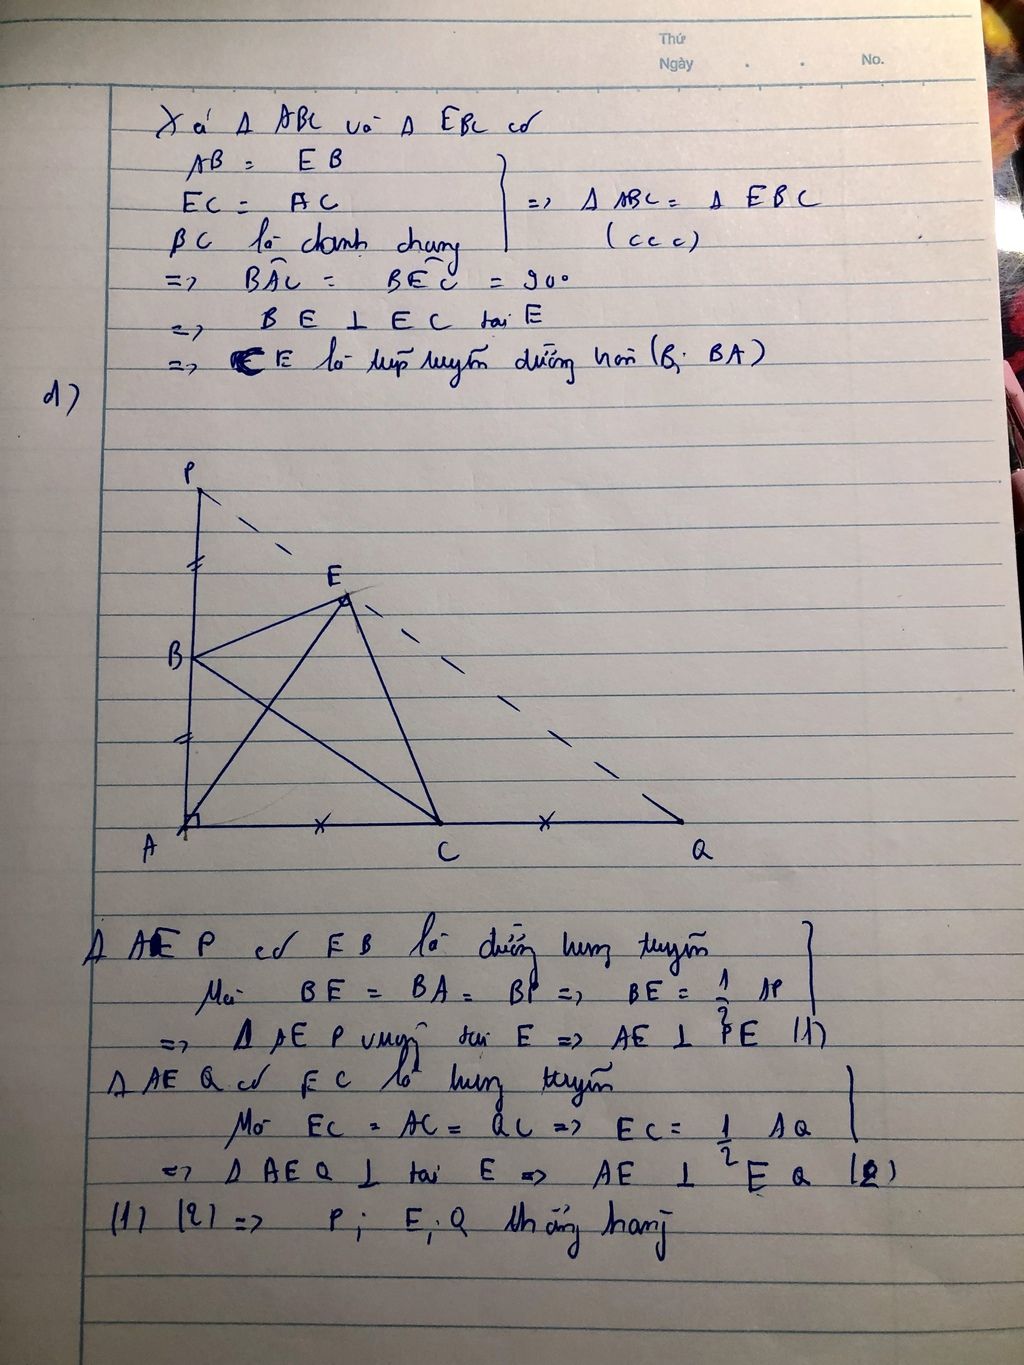 Thứ
Ngày . . No.
Xét Δ ABC và Δ EBC có
AB = EB
EC = AC
BC là cạnh chung
=> Δ ABC = Δ EBC
(c c c)
=> BÂC = BÊC = 90°
=> BE ⊥ EC tại E
=> CE là tiếp tuyến đường tròn (B; BA)
d)
P
E
B
A
C
Q
Δ AEP có EB là đường trung tuyến
Mà BE = BA = BP => BE = 1/2 AP
=> Δ AEP vuông tại E => AE ⊥ PE (1)
Δ AEQ có EC là trung tuyến
Mà EC = AC = QC => EC = 1/2 AQ
=> Δ AEQ ⊥ tại E => AE ⊥ EQ (2)
(1) (2) => P; E; Q thẳng hàng